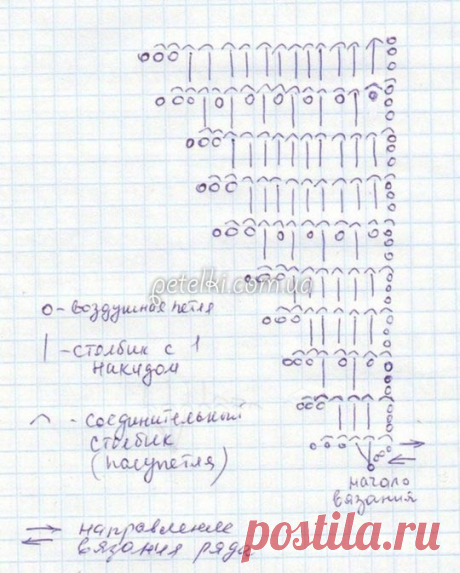 petelki.com.ua
о - воздушная петля
| - столбик с 1
накидом
⌒ - соединительный
столбик
(полупетля)
начало
вязания
→ направление
← вязания ряда
postila.ru